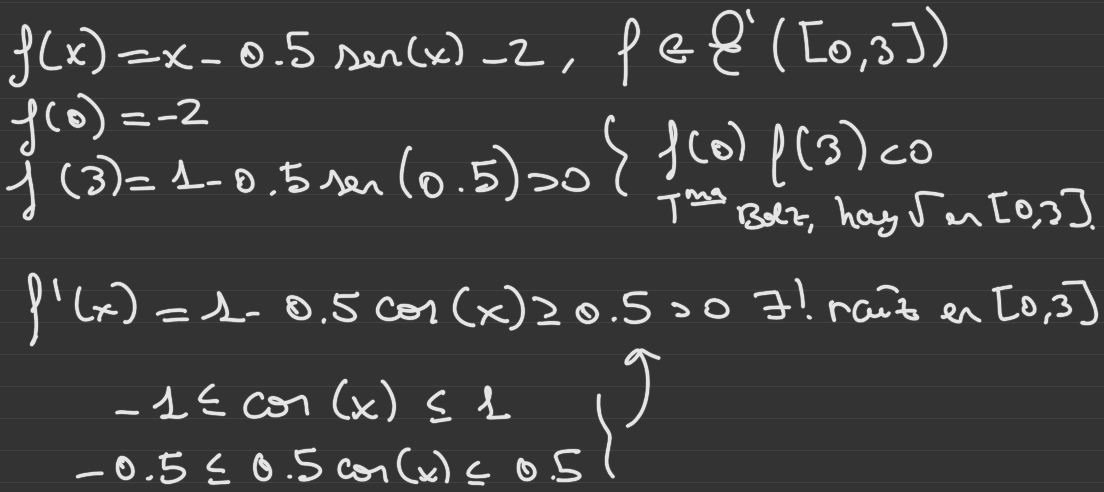 f(x) = x - 0.5 sen(x) - 2, f ∈ C'([0,3])
f(0) = -2
f(3) = 1 - 0.5 sen(0.5) > 0 } f(0) f(3) < 0
Tma Bolz, hay √ en [0,3].
f'(x) = 1 - 0.5 cos(x) ≥ 0.5 > 0 ∃! raíz en [0,3]
-1 ≤ cos(x) ≤ 1
-0.5 ≤ 0.5 cos(x) ≤ 0.5